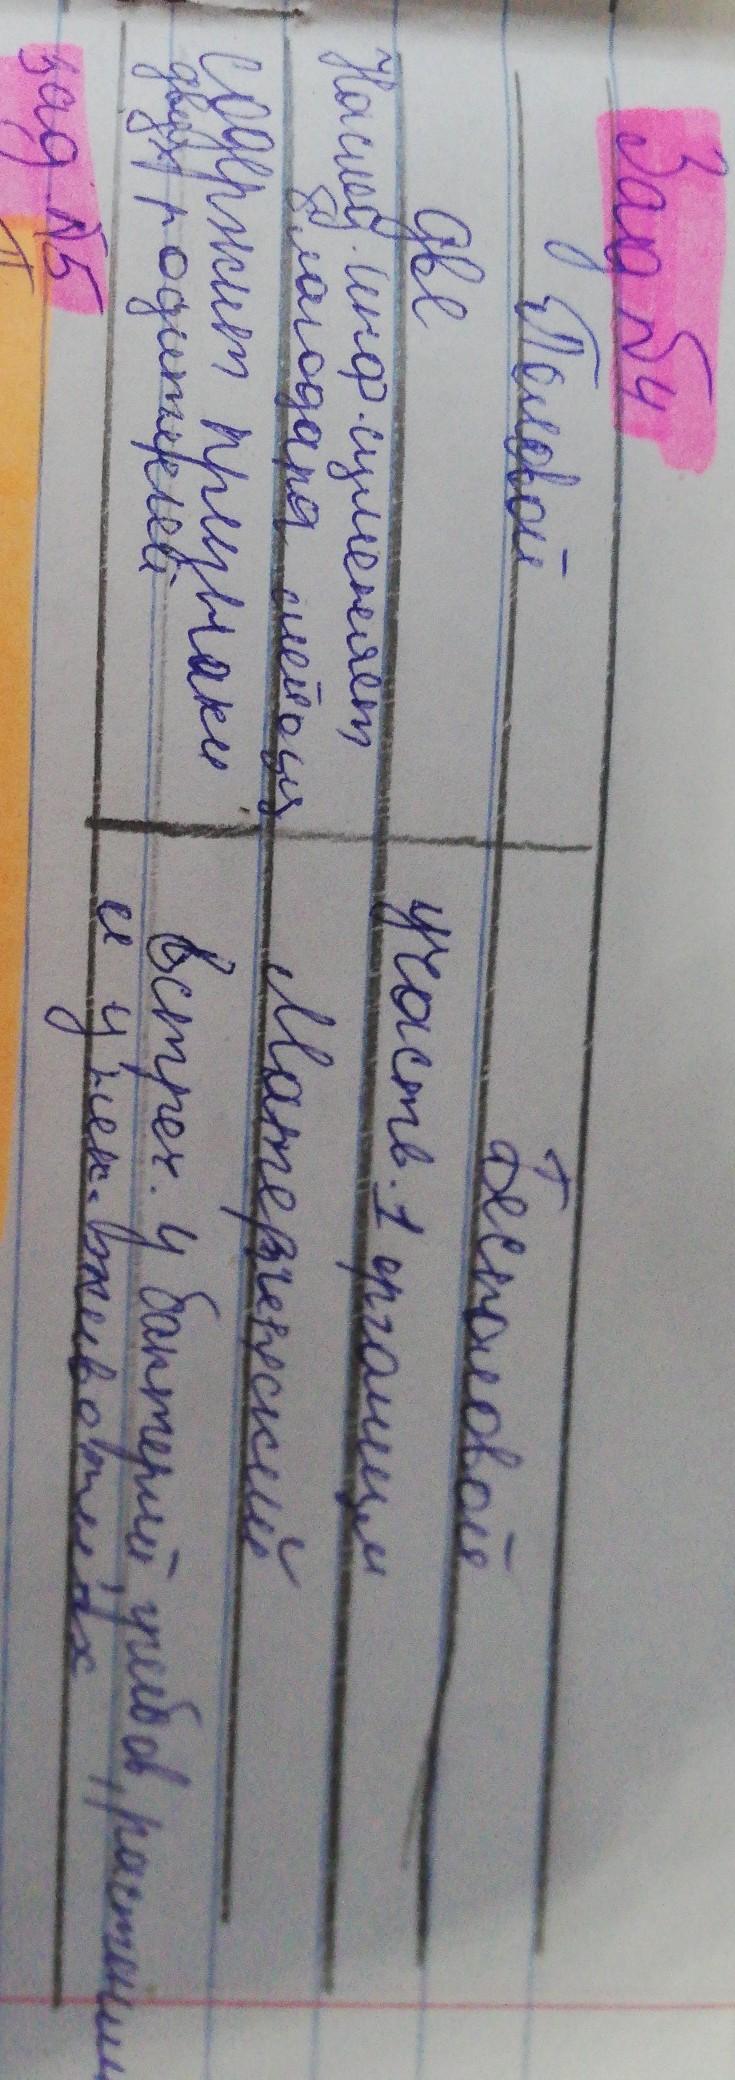 Зад №4
Половой
Бесполовой
две
участв. 1 организм
Наслед. инф. изменяет
благодаря мейоза
Материнский
Содержит признаки
двух родителей
Встреч. у бактерий грибов, растений
и у нек. животных
зад №5